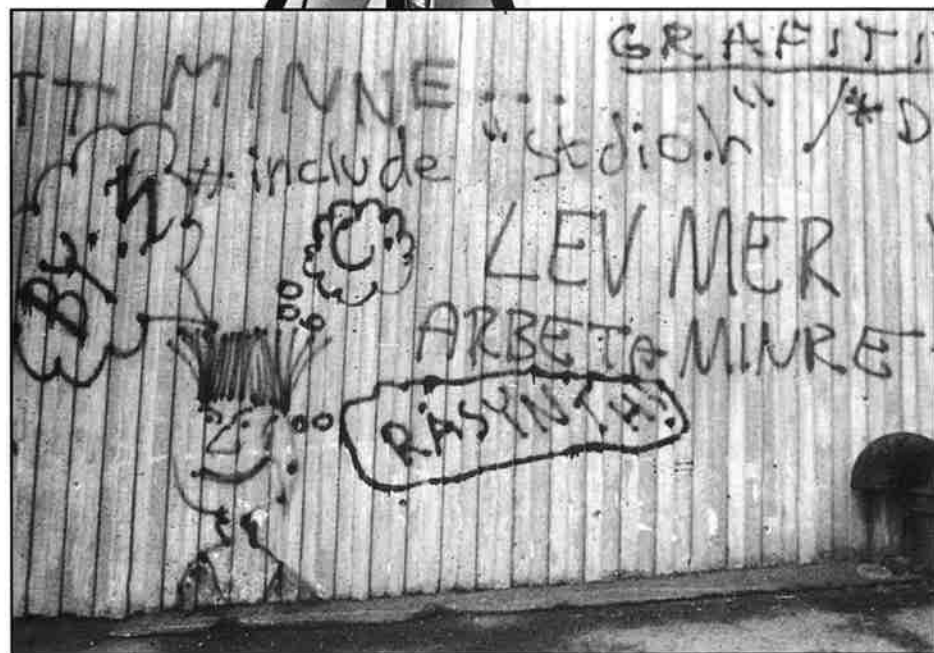 GRAFITI
TT MINNE...
#include "stdio.h" /* D
C
LEV MER
ARBETA MINRE